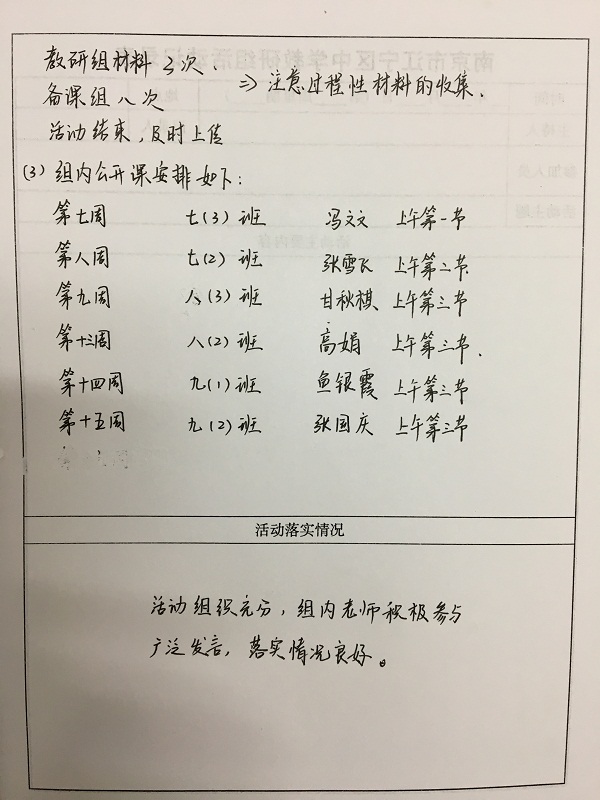 教研组材料3次.
备课组八次
活动结束,及时上传
⇒ 注意过程性材料的收集.
(3) 组内公开课安排如下:
第七周 七(3)班 冯文文 上午第一节
第八周 七(2)班 张雪飞 上午第二节.
第九周 八(3)班 甘秋祺 上午第三节
第十三周 八(2)班 高娟 上午第三节.
第十四周 九(1)班 鱼银霞 上午第三节
第十五周 九(2)班 张国庆 上午第三节
活动落实情况
活动组织充分,组内老师积极参与
广泛发言,落实情况良好。